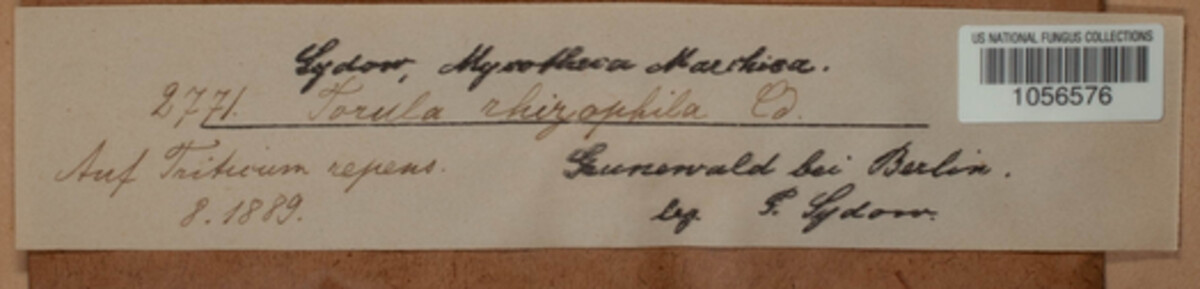 Sydow, Mycotheca Marchica.
2771. Torula rhizophila Cd.
Auf Triticum repens.
8. 1889.
Grunewald bei Berlin.
leg. P. Sydow.
US NATIONAL FUNGUS COLLECTIONS
1056576